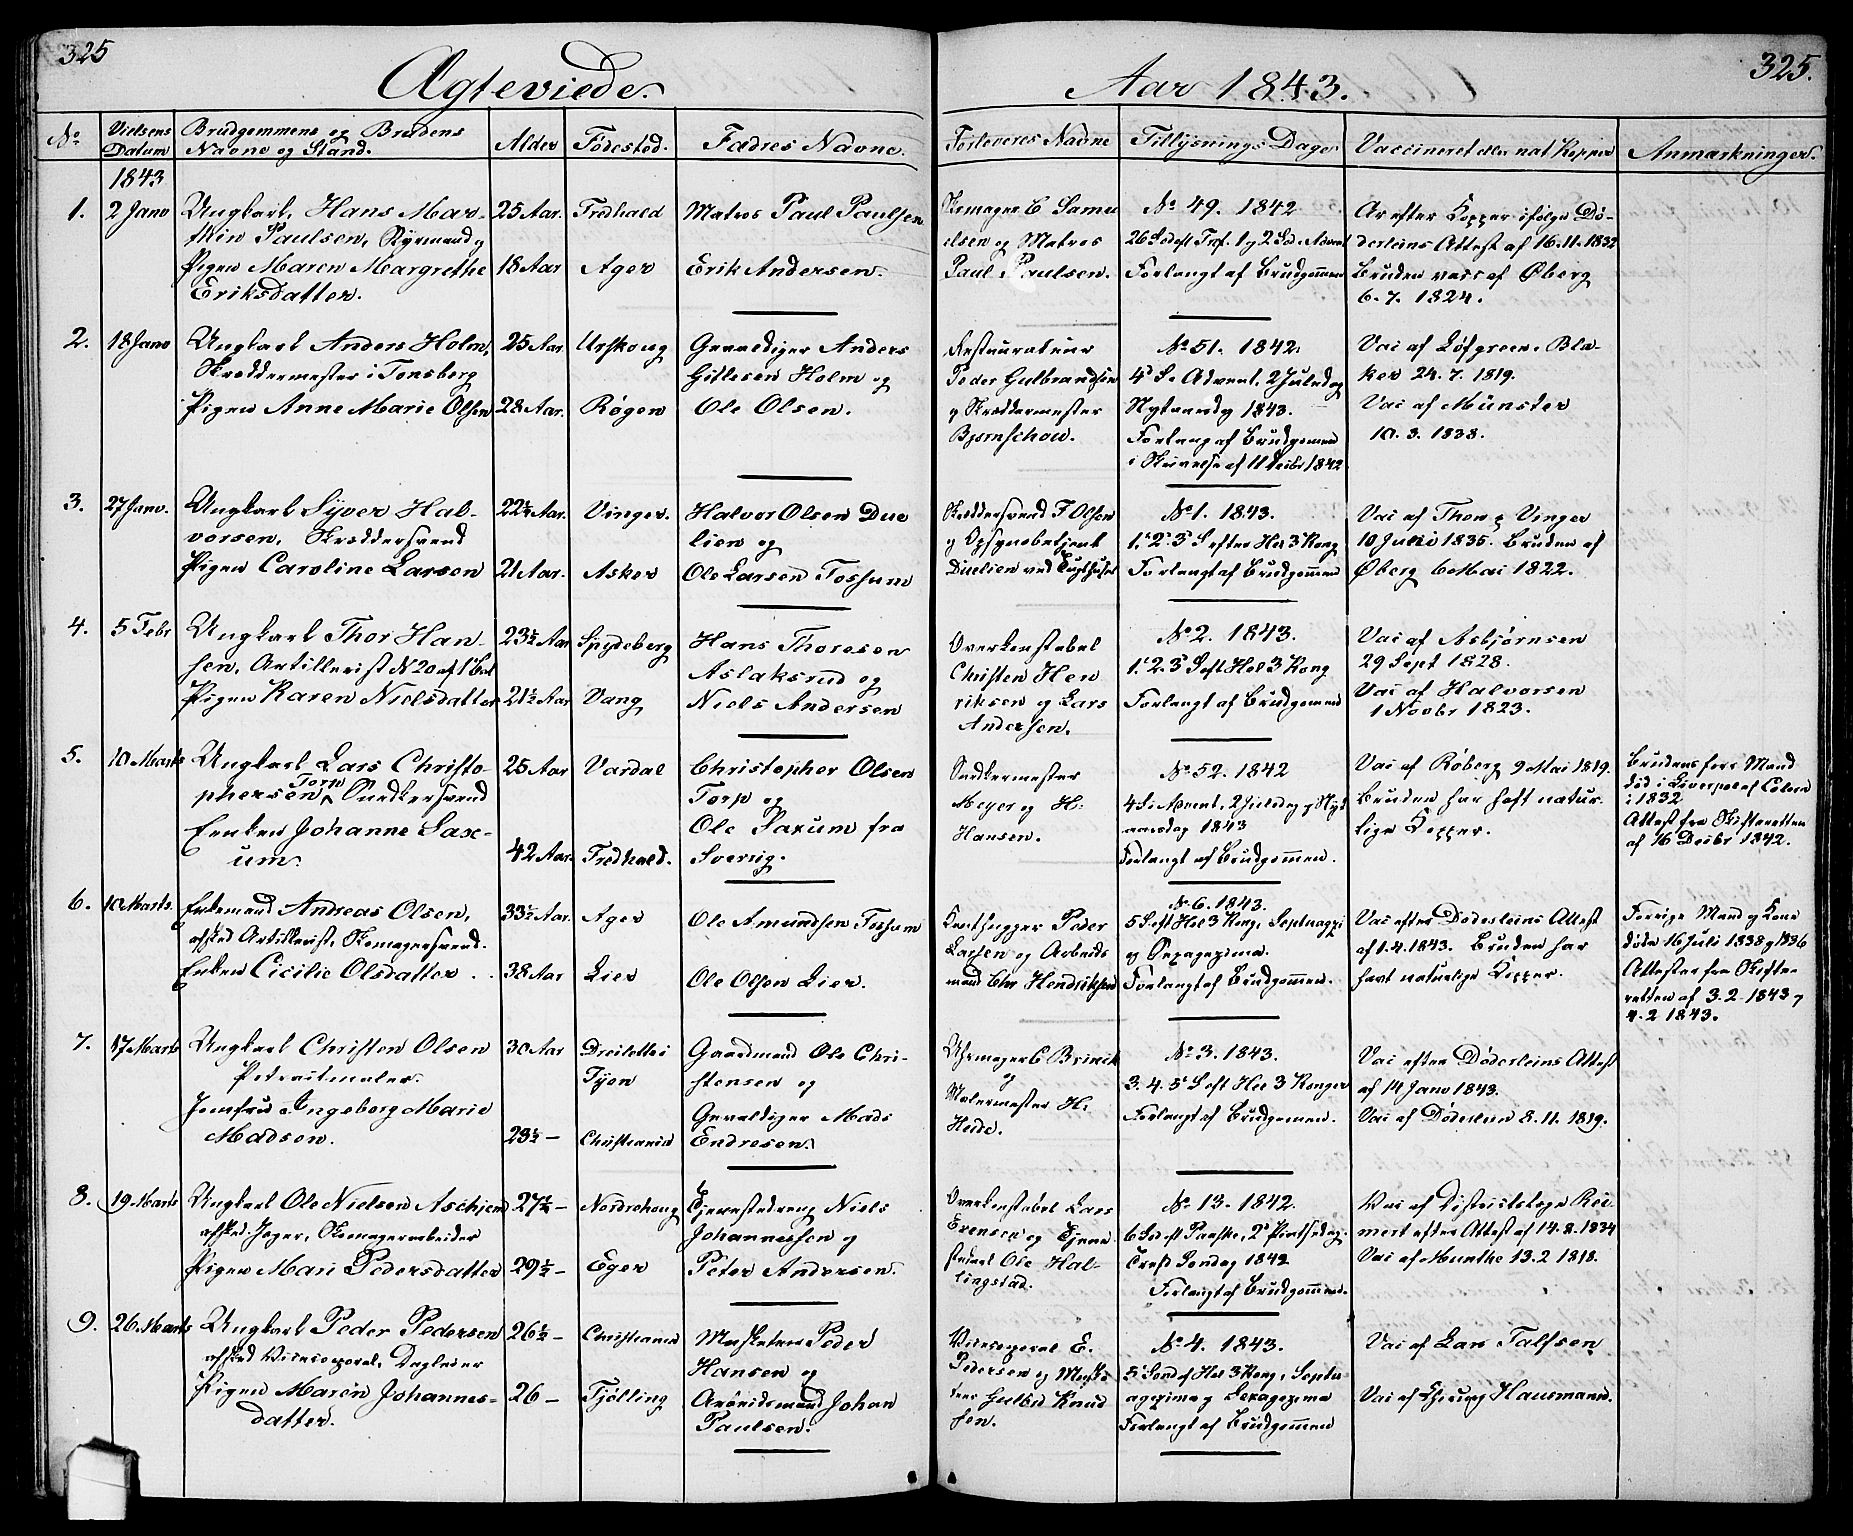 325
Ægteviede.
Aar 1843.
325.
No
Vielsens Datum
Brudgommens og Brudens Navne og Stand.
Alder
Fødested.
Fædres Navne.
Forloveres Navne
Tillysnings Dage
Vaccineret eller nat. Kopper
Anmærkninger.
1843
1. 2 Janv
Ungkarl, Hans Mar-
thin Paulsen, Styrmand og
Pigen Maren Margrethe
Eriksdatter.
25 Aar. Fredhald
18 Aar Ager
Matros Paul Paulsen
Erik Andersen.
Skomager C Samu
elsen og Matros
Paul Paulsen.
No 49. 1842
26 Sødeft Tref. 1 og 2 Sød. Advent
Forlangt af Brudgommen
Ar efter Kopper ifølge Dø-
derleins Attest af 16.11.1832
Bruden vacc af Øberg
6.7. 1824.
2. 18 Janv
Ungkarl Anders Holm,
Skræddermester i Tønsberg
Pigen Anne Marie Olsen
25 Aar Urskoug
28 Aar. Røgen
Gevaldiger Anders
Gittesen Holm og
Ole Olsen.
Restaurateur
Peder Gulbrandsen
og Skræddermester
Bjørnschou.
No 51. 1842.
4de S. Advent, 2 Juledag
Nytaarsdg 1843.
Forlang af Brudgommen
i Skrivelse af 11 Decbr 1842
Vac af Løfgreen. Bla-
ker 24.7. 1819.
Vac af Münster
10. 3. 1838.
3. 27 Janv.
Ungkarl Syver Hal-
vorsen, Skræddersvend
Pigen Caroline Larsen
22½ Aar. Vinger.
21 Aar. Asker
Halvor Olsen Due
lien og
Ole Larsen Tossum
Skræddersvend F Olsen
og Opsynsbetjent
Duelien ved Tugthuset
No 1. 1843.
1. 2. 3 S efter Hel 3 Kong
Forlangt af Brudgommen
Vac af Thon i Vinger
10 Juli 1835. Bruden af
Øberg 6 Mai 1822.
4. 5 Febr
Ungkarl Thor Han
sen, Artillerist N 20 af 1 Bat
Pigen Karen Nielsdatter
23½ Aar Spydeberg
21½ Aar Vang
Hans Thoresen
Aslaksrud og
Niels Andersen
Overkonstabel
Christen Hen
riksen og Lars
Andersen.
No 2. 1843.
1. 2. 3 S eft Hel 3 Kong
Forlangt af Brudgommen
Vac af Asbjørnsen
29 Sept 1828.
Vac af Halvorsen
1 Novbr 1823.
5. 10 Marts
Ungkarl Lars Christo-
phersen Torp, Snedkersvend
Enken Johanne Sax-
um.
25 Aar Vardal
42 Aar Fredhald.
Christopher Olsen
Torp og
Ole Saxum fra
Sverrig.
Snedkermester
Meyer og H.
Hansen.
No 52. 1842
4 S i Advent, 2 Juledag og Nyt
aarsdag 1843
Forlangt af Brudgommen.
Vac af Røberg 9 Mai 1819.
Bruden har haft natur-
lige Kopper.
Brudens forr. Mand
død i Liverpool af Colera
i 1832
Attest fra Skifteretten
af 16 Decbr 1842.
6. 10 Marts.
Enkemand Andreas Olsen,
afsked Artillerist, Skomagersvend.
Enken Cicilie Olsdatter
33½ Aar. Ager
38 Aar Lier
Ole Amundsen Tossum
Ole Olsen Lier.
Peder
Larsen og Arbeids
mand Chr Hendriksen
No 6. 1843.
5 S eft Hel 3 Kong, Septuagesi
og Sexagesima.
Forlangt af Brudgommen.
Vac efter Døderleins Attest
af 1.4.1843. Bruden har
havt naturlige Kopper.
Forrige Mand og Kone
døde 16 Juli 1838 og 1836
Attester fra Skifte-
retten af 3.2 1843 og
4.2 1843.
7. 17 Marts
Ungkarl Christen Olsen
Portraitmaler.
Jomfru Ingeborg Marie
Madsen.
30 Aar
Fyen
23½ – Christiania
Gaardmand Ole Chri-
stensen og
Gevaldiger Mads
Endresen.
Uhrmager C Brinck
og
Malermester H.
Heide.
No 3. 1843.
3. 4. 5 S eft Hel 3 Konger
Forlangt af Brudgommen.
Vac efter Døderleins Attest
af 14 Janv 1843.
Vac af Døderlein 8.11. 1819.
8. 19 Marts
Ungkarl Ole Nielsen Aschjem
afsked. Jæger, Skomagerarbeider
Pigen Mari Pedersdatter
27½ – Nordrehoug
29½ – Eger
Tjenestedreng Niels
Johannessen og
Peter Andersen.
Overkonstabel Lars
Evensen og Tjene
stekarl Ole Hal-
lingstad.
No 13. 1842.
6 Sød eft Paaske, 2 Pintsedag,
Tref. Søndag 1842
Forlangt af Brudgommen.
Vac af Districtslæge Rei-
mert efter Attest af 14.8.1834
Vac af Munthe 13.2 1818.
9. 26 Marts
Ungkarl Peder Pedersen
afsked Vicecorporal, Dagleier
Pigen Maren Johannes-
datter.
26½ – Christiania
26 – Tjølling
Musketeer Peder
Hansen og
Arbeidsmand Johan
Paulsen.
Vicecorporal E.
Pedersen og Muske
teer Gulbd Knud
sen.
No 4. 1843.
5 Sønd ef Hel 3 Kong, Septu-
agesima og Sexagesima
Forlangt af Brudgommen
Vac af Lars Talfsen
Vac af Chirurg Hausmann.